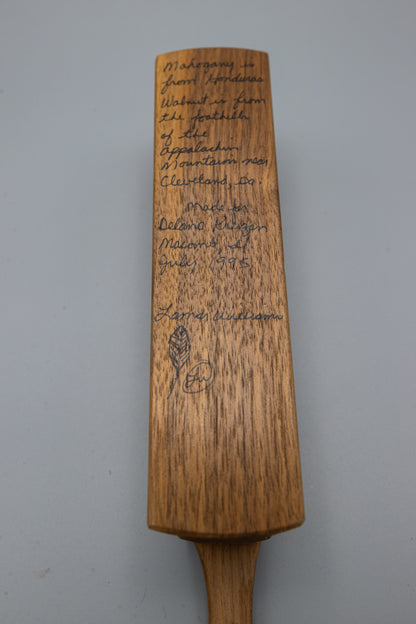 Mahogany is
from Honduras
Walnut is from
the foothills
of the
Appalachin
Mountains near
Cleveland, Ga.
Made for
Delano
Macomb, Il
July 1995
Lamar Williams
LW